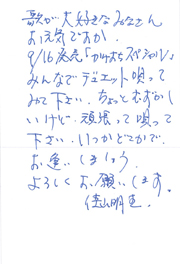 歌が大好きなみなさん
お元気ですか。
9/16発売「かけもちスペシャル」
みんなでデュエット唄って
みて下さい。ちょっとむずかし
いけど、頑張って唄って
下さい。いつかどこかで、
お逢いしましょう。
よろしくお願いします。
佳山明生